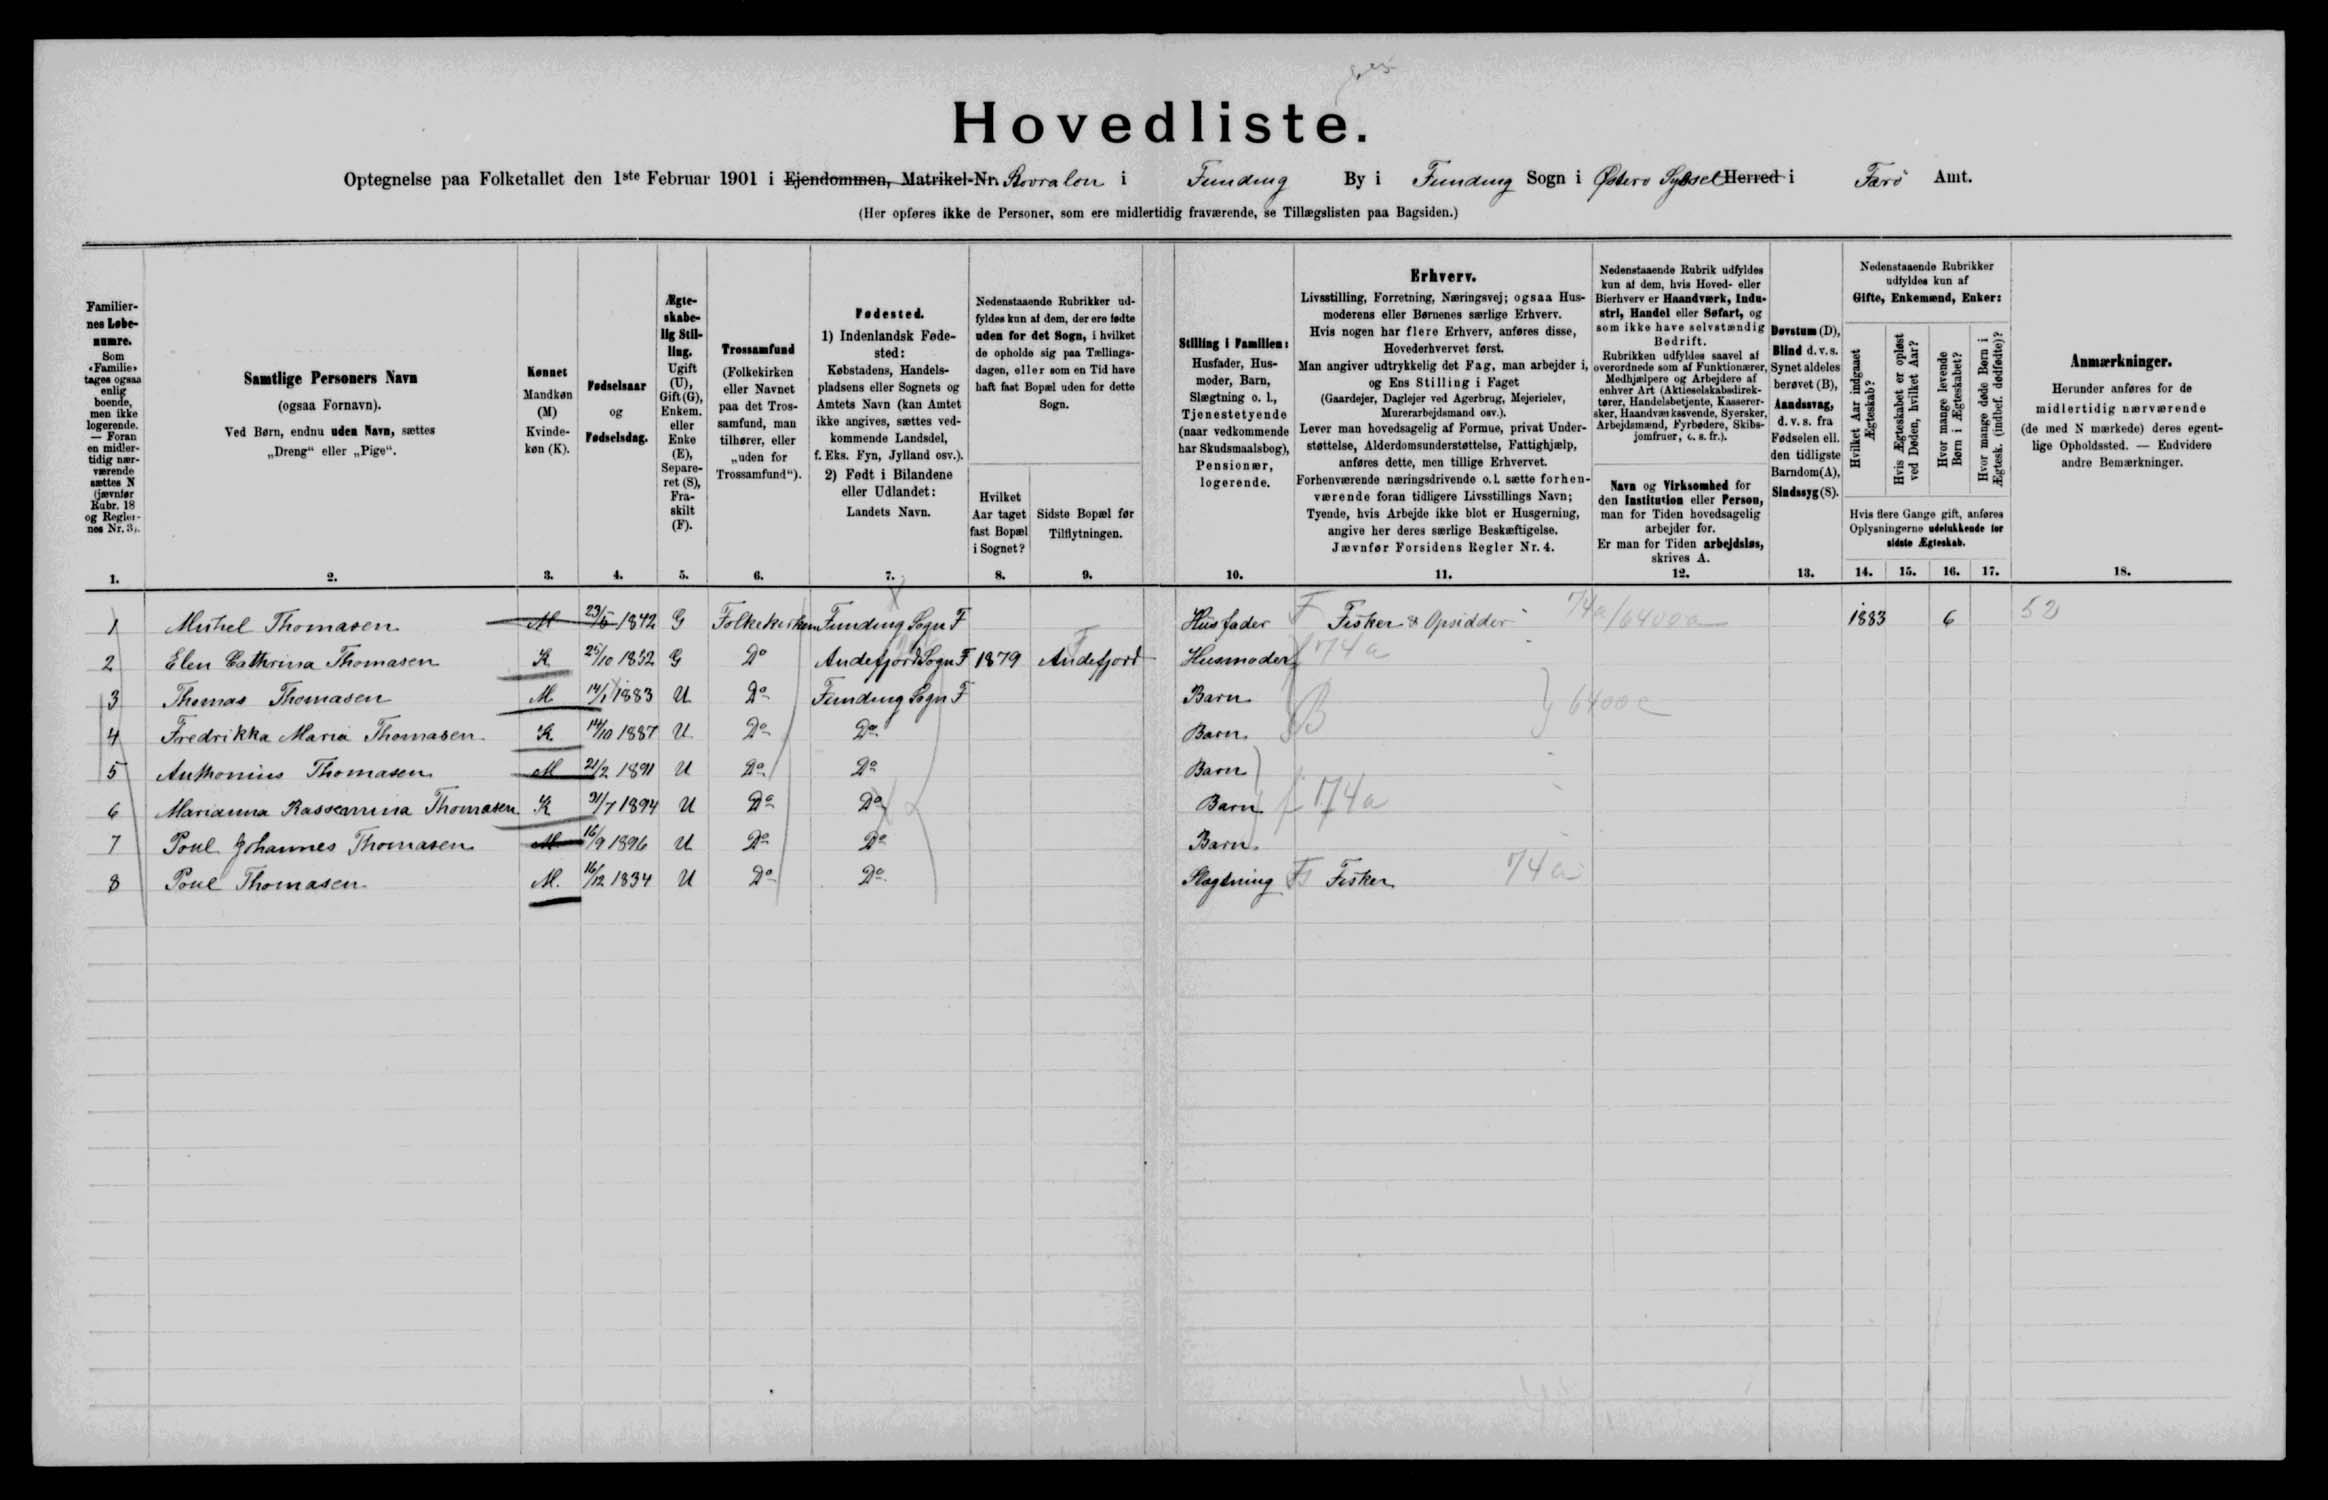 Hovedliste.
Optegnelse paa Folketallet den 1ste Februar 1901 i Ejendommen, Matrikel-Nr. i Funding By i Funding Sogn i Østerø Syssel Herred i Færø Amt.
(Her opføres ikke de Personer, som ere midlertidig fraværende, se Tillægslisten paa Bagsiden.)
Familiernes Løbenumre.
Som «Familie» tages ogsaa enlig boende, men ikke logerende. — Foran en midlertidig nærværende sættes N (jævnfør Rubr. 18 og Reglernes Nr. 3).
1.
Samtlige Personers Navn
(ogsaa Fornavn).
Ved Børn, endnu uden Navn, sættes
„Dreng“ eller „Pige“.
2.
Kønnet
Mandkøn (M)
Kvindekøn (K).
3.
Fødselsaar
og
Fødselsdag.
4.
Ægteskabelig Stilling.
Ugift (U), Gift (G), Enkem. eller Enke (E), Separeret (S), Fraskilt (F).
5.
Trossamfund
(Folkekirken eller Navnet paa det Trossamfund, man tilhører, eller „uden for Trossamfund“).
6.
Fødested.
1) Indenlandsk Fødested:
Købstadens, Handelspladsens eller Sognets og Amtets Navn (kan Amtet ikke angives, sættes vedkommende Landsdel, f. Eks. Fyn, Jylland osv.).
2) Født i Bilandene eller Udlandet:
Landets Navn.
7.
Nedenstaaende Rubrikker udfyldes kun af dem, der ere fødte uden for det Sogn, i hvilket de opholde sig paa Tællingsdagen, eller som en Tid have haft fast Bopæl uden for dette Sogn.
Hvilket Aar taget fast Bopæl i Sognet?
8.
Sidste Bopæl før Tilflytningen.
9.
Stilling i Familien:
Husfader, Husmoder, Barn, Slægtning o. l., Tjenestetyende (naar vedkommende har Skudsmaalsbog), Pensionær, logerende.
10.
Erhverv.
Livsstilling, Forretning, Næringsvej; ogsaa Husmoderens eller Børnenes særlige Erhverv.
Hvis nogen har flere Erhverv, anføres disse, Hovederhvervet først.
Man angiver udtrykkelig det Fag, man arbejder i, og Ens Stilling i Faget
(Gaardejer, Daglejer ved Agerbrug, Mejerielev, Murerarbejdsmand osv.).
Lever man hovedsagelig af Formue, privat Understøttelse, Alderdomsunderstøttelse, Fattighjælp, anføres dette, men tillige Erhvervet.
Forhenværende næringsdrivende o. l. sætte forhenværende foran tidligere Livsstillings Navn; Tyende, hvis Arbejde ikke blot er Husgerning, angive her deres særlige Beskæftigelse.
Jævnfør Forsidens Regler Nr. 4.
11.
Nedenstaaende Rubrik udfyldes kun af dem, hvis Hoved- eller Bierhverv er Haandværk, Industri, Handel eller Søfart, og som ikke have selvstændig Bedrift.
Rubrikken udfyldes saavel af overordnede som af Funktionærer, Medhjælpere og Arbejdere af enhver Art (Aktieselskabsdirektører, Handelsbetjente, Kasserersker, Haandværkssvende, Syersker, Arbejdsmænd, Fyrbødere, Skibsjomfruer, o. s. fr.).
Navn og Virksomhed for den Institution eller Person, man for Tiden hovedsagelig arbejder for.
Er man for Tiden arbejdsløs, skrives A.
12.
Døvstum (D), Blind d. v. s. Synet aldeles berøvet (B), Aandssvag, d. v. s. fra Fødselen ell. den tidligste Barndom (A), Sindssyg (S).
13.
Nedenstaaende Rubrikker udfyldes kun af
Gifte, Enkemænd, Enker:
Hvilket Aar indgaaet Ægteskab?
Hvis Ægteskabet er opløst ved Døden, hvilket Aar?
Hvor mange levende Børn i Ægteskabet?
Hvor mange døde Børn i Ægtesk. (indbef. dødfødte)?
Hvis flere Gange gift, anføres Oplysningerne udelukkende for sidste Ægteskab.
14. 15. 16. 17.
Anmærkninger.
Herunder anføres for de midlertidig nærværende (de med N mærkede) deres egentlige Opholdssted. — Endvidere andre Bemærkninger.
18.
1 Mishel Thomasen M 23/5 1842 G Folkekirken Funding Sogn F Husfader F Fisker & Opsidder 74a/6400a 1883 6 52
2 Elen Cathrina Thomasen K 25/10 1852 G Do Andefjord Sogn F 1879 Andefjord Husmoder 74a
3 Thomas Thomasen M 14/1 1883 U Do Funding Sogn F Barn B 6400c
4 Fredrikka Maria Thomasen K 14/10 1887 U Do Do Barn
5 Anthonius Thomasen M 21/2 1891 U Do Do Barn
6 Marianna Rassamina Thomasen K 31/7 1894 U Do Do Barn 174a
7 Poul Johannes Thomasen M 16/9 1896 U Do Do Barn
8 Poul Thomasen M. 16/12 1834 U Do Do Slægtning Fisker 74a